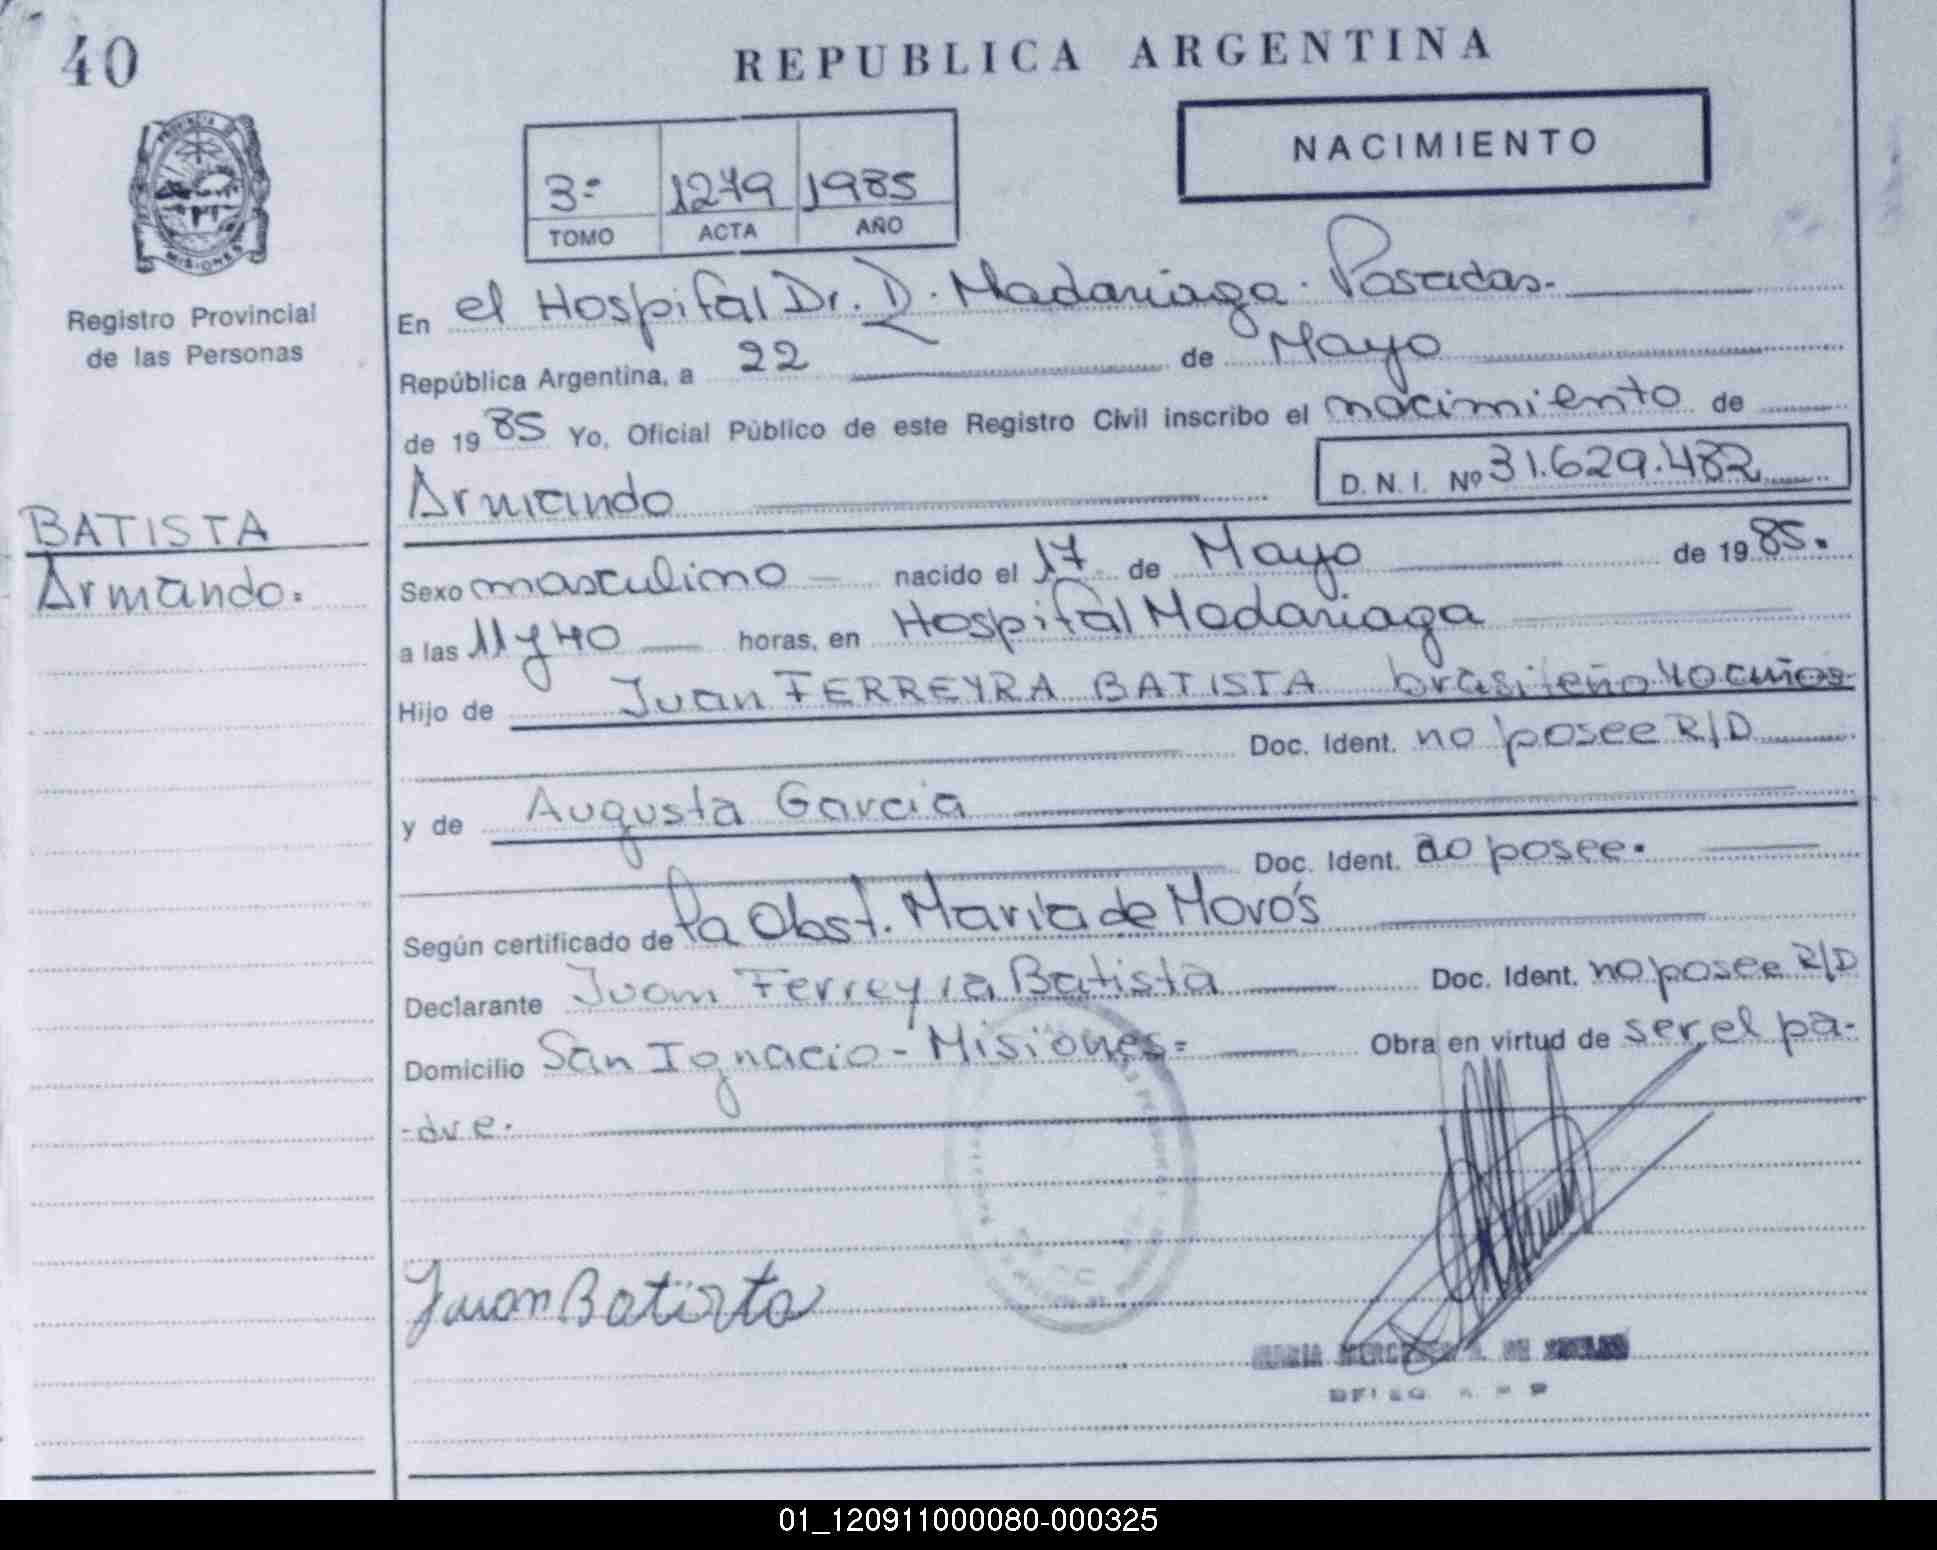 40
REPUBLICA ARGENTINA
NACIMIENTO
3º 1279 1985
TOMO ACTA AÑO
PROVINCIA DE
MISIONES
Registro Provincial
de las Personas
En el Hospital Dr. R. Madariaga. Posadas.
República Argentina, a 22 de Mayo
de 1985 Yo, Oficial Público de este Registro Civil inscribo el nacimiento de
Armando D. N. I. Nº 31.629.482
BATISTA
Armando.
Sexo masculino nacido el 17 de Mayo de 1985.
a las 11 y 40 horas, en Hospital Madariaga
Hijo de Juan FERREYRA BATISTA brasileño 40 años
Doc. Ident. no posee R/D
y de Augusta Garcia
Doc. Ident. no posee.
Según certificado de la Obst. Maria de
Declarante Juan Ferreyra Batista Doc. Ident. no posee R/D
Domicilio San Ignacio - Misiones= Obra en virtud de ser el pa-
-dre.
Juan Batista
MARIA DE
01_120911000080-000325